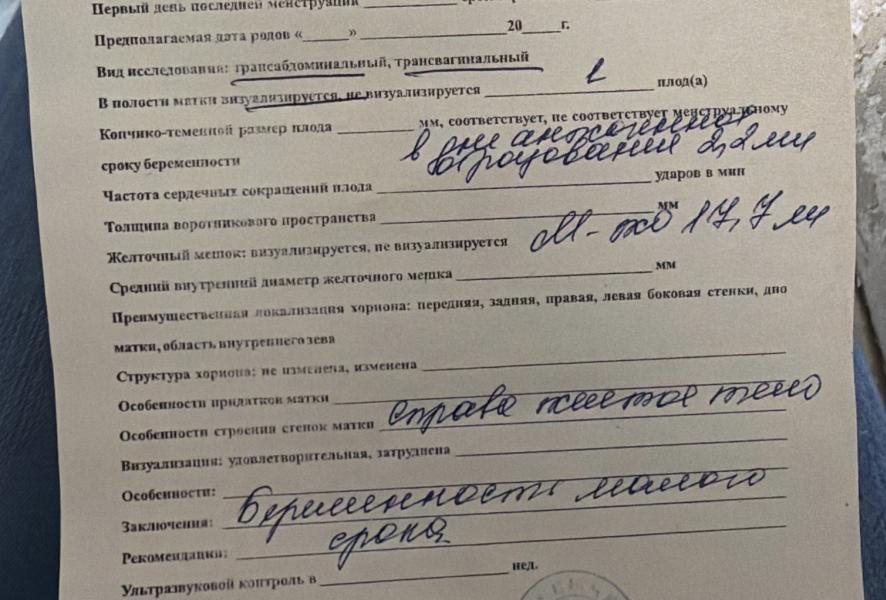 Первый день последней менструации ______
Предполагаемая дата родов «______» ______ 20____г.
Вид исследования: трансабдоминальный, трансвагинальный
В полости матки визуализируется, не визуализируется ______ 1 ______ плод(а)
Копчико-теменной размер плода ______ мм, соответствует, не соответствует менструальному
сроку беременности
в
образование 2,2 мм
Частота сердечных сокращений плода ______ ударов в мин
Толщина воротникового пространства ______ мм
М-эхо 17,7 мм
Желточный мешок: визуализируется, не визуализируется
Средний внутренний диаметр желточного мешка ______ мм
Преимущественная локализация хориона: передняя, задняя, правая, левая боковая стенки, дно
матки, область внутреннего зева
Структура хориона: не изменена, изменена ______
Особенности придатков матки ______
справа желтое тело
Особенности строения стенок матки ______
Визуализация: удовлетворительная, затруднена ______
Особенности: ______
Беременность малого
Заключения: ______
срока
Рекомендации: ______
Ультразвуковой контроль в ______ нед.